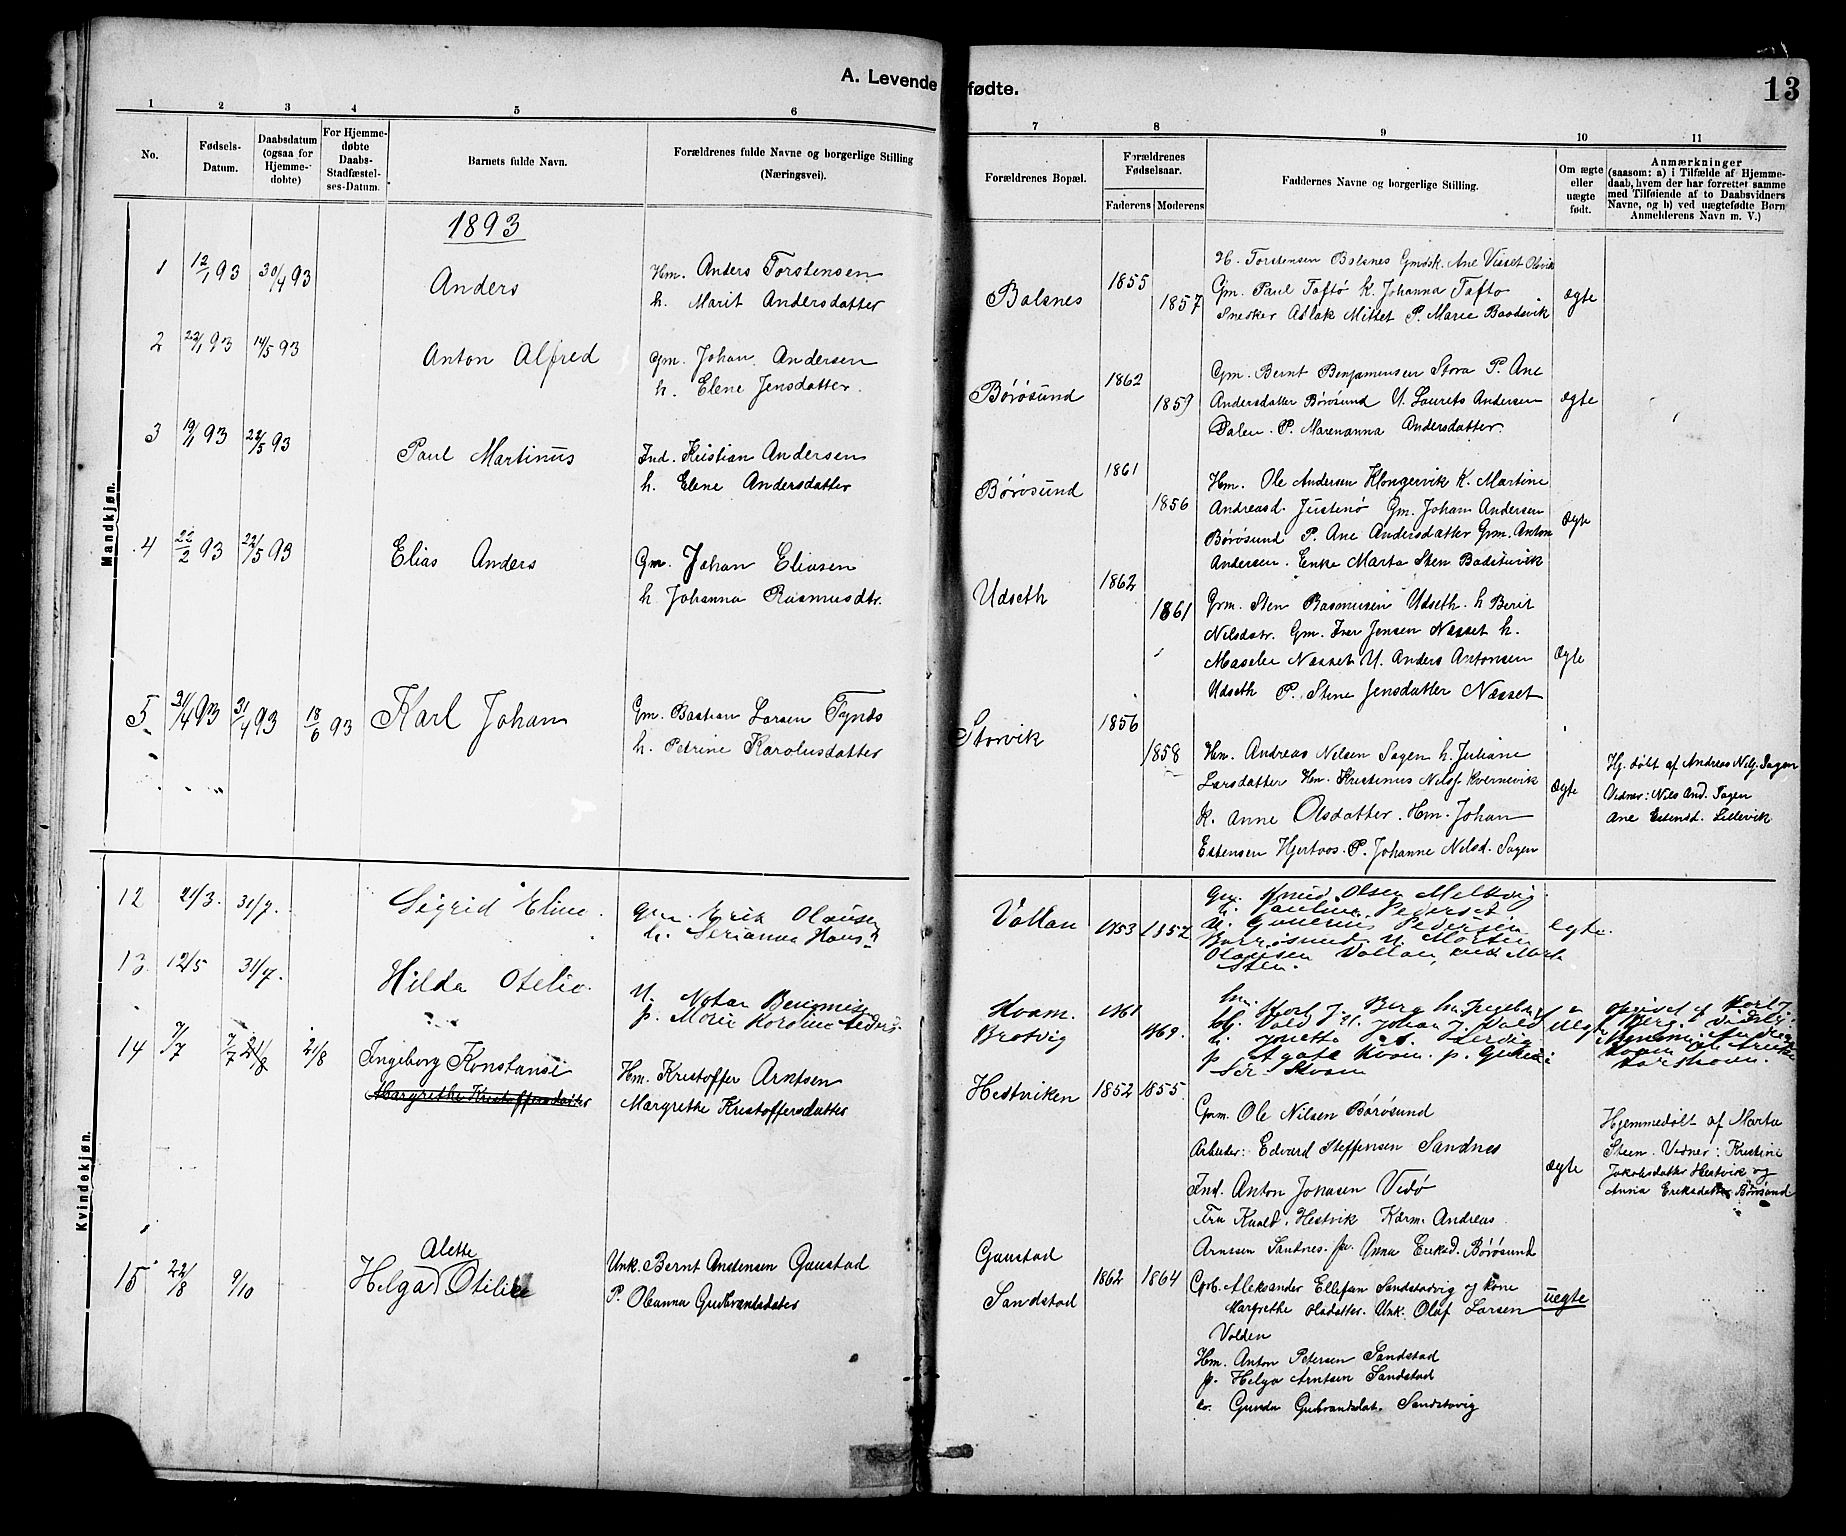 A. Levende fødte.
13
1 2 3 4 5 6 7 8 9 10 11
No.
Fødsels-
Datum.
Daabsdatum
(ogsaa for
Hjemme-
døbte)
For Hjemme-
døbte
Daabs-
Stadfæstel-
ses-Datum.
Barnets fulde Navn.
Forældrenes fulde Navne og borgerlige Stilling
(Næringsvei).
Forældrenes Bopæl.
Forældrenes
Fødselsaar.
Faderens Moderens
Faddernes Navne og borgerlige Stilling.
Om ægte
eller
uægte
født.
Anmærkninger
(saasom: a) i Tilfælde af Hjemme-
daab, hvem der har forrettet samme
med Tilføiende af to Daabsvidners
Navne, og b) ved uægtefødte Børn
Anmelderens Navn m. V.)
Mandkjøn.
1893
1 12/1 93 30/4 93
Anders
Hm. Anders Torstensen
h. Marit Andersdatter
Balsnes
1855
1857
H. Torstensen Balsnes Gmdsk. Ane Visset
Gm. Paul Taftø K. Johanna Taftø
Snedker Aslak Mittet P. Marie Baadsvik
Ægte
2 22/1 93 14/5 93
Anton Alfred
Gm. Johan Andersen
h. Elene Jensdatter.
Børøsund
1862
1859
Gm. Bernt Benjaminsen Storø P. Ane
Andersdatter Børøsund U. Laurits Andersen
Dalen. P. Marenanna Andersdatter.
Ægte
3 19/1 93 22/5 93
Paul Martinus
Ind. Kristian Andersen
h. Elene Andersdatter
Børøsund
1861
1856
Hm. Ole Andersen Klongervik K. Martine
Andreasd. Justenø Gm. Johan Andersen
Børøsund P. Ane Andersdatter Gm. Anton
Andersen. Enke Marta Sten Badstuvik
Ægte
4 22/2 93 22/5 93
Elias Anders
Gm. Johan Eliasen
h Johanna Rasmusdtr.
Udseth
1862
1861
Gm. Sten Rasmusen Udseth. h Berit
Nilsdatr. Gm. Iver Jensen Næsset h.
Næsset U. Anders Antonsen
Udseth P. Stine Jensdatter Næsset
Ægte
5 21/4 93 31/4 93 18/6 93
Karl Johan
Gm. Bastian Larsen Fynds
h. Petrine Karolusdatter
Storvik
1856
1858
Hm. Andreas Nilsen Sagen h. Juliane
Larsdatter Hm. Kristinus Nilss. Kvernevik
K. Anne Olsdatter. Hm. Johan
Estensen Hjertaas. P. Johanne Nilsd. Sagen
Ægte
Hj. døbt af Andreas Nils. Sagen
Vidner: Nils And. Sagen
Ane Estensd. Lillevik
Kvindekjøn.
12 21/3. 31/7.
Sigrid Eline.
Gm. Erik Olausen
h. Serianna Hansd
Vollan
1853 1852
Gm. Knud Olsen Melkvig.
h. Pauline Pedersdt
U. Gunerius Pedersen
Børrøsund. U. Morten
Olausen Vollan, enke Marta
Sten.
egte.
13 12/5 31/7.
Hilda Otelie.
U. Notar Benonise
p. Marie Karoline Peders.
Kvam.
Brotvig
1861
1869.
hm. Karl J. Berg hu. Ingeborg
U. Johan J. Vold
p. Agate Kvam. p.
Kvam
uegte
opgivet af Karl J.
Berg. Vidner:
14 7/7 7/7 21/8 21/8
Ingeborg Konstanse
Margrethe Kristoffersdatter
Hm. Kristoffer Arntsen
Margrethe Kristoffersdatter
Hestviken
1852 1855.
Gm. Ole Nilsen Børøsund
Arbeider: Edvard Steffensen Sandnes
Ind. Anton Johasen Vedø
Fru Kvald. Hestvik Kårm. Andreas
Arnssen Sandnes. pi. Anna Eriksd. Børøsund
ægte
Hjemmedøbt af Marta
Steen. Vidner: Kristine
Jakobsdatter Hestvik og
Anna Eriksdatter Børøsund
15 22/8 9/10
Alette
Helga Otilie
Unk. Bernt Anstensen Gaustad
P. Oleanna Gudbrandsdatter
Gaustad
Sandstad
1862 1864
Gbr. Aleksander Ellefsen Sandstadvig og kone
Margrethe Olsdatter. Unk. Olaf Larsen
Volden
Hm. Anton Petersen Sandstad
p. Helga Arntsen Sandstad
Gunda Gudbrandsdat. Sandstavig
uegte